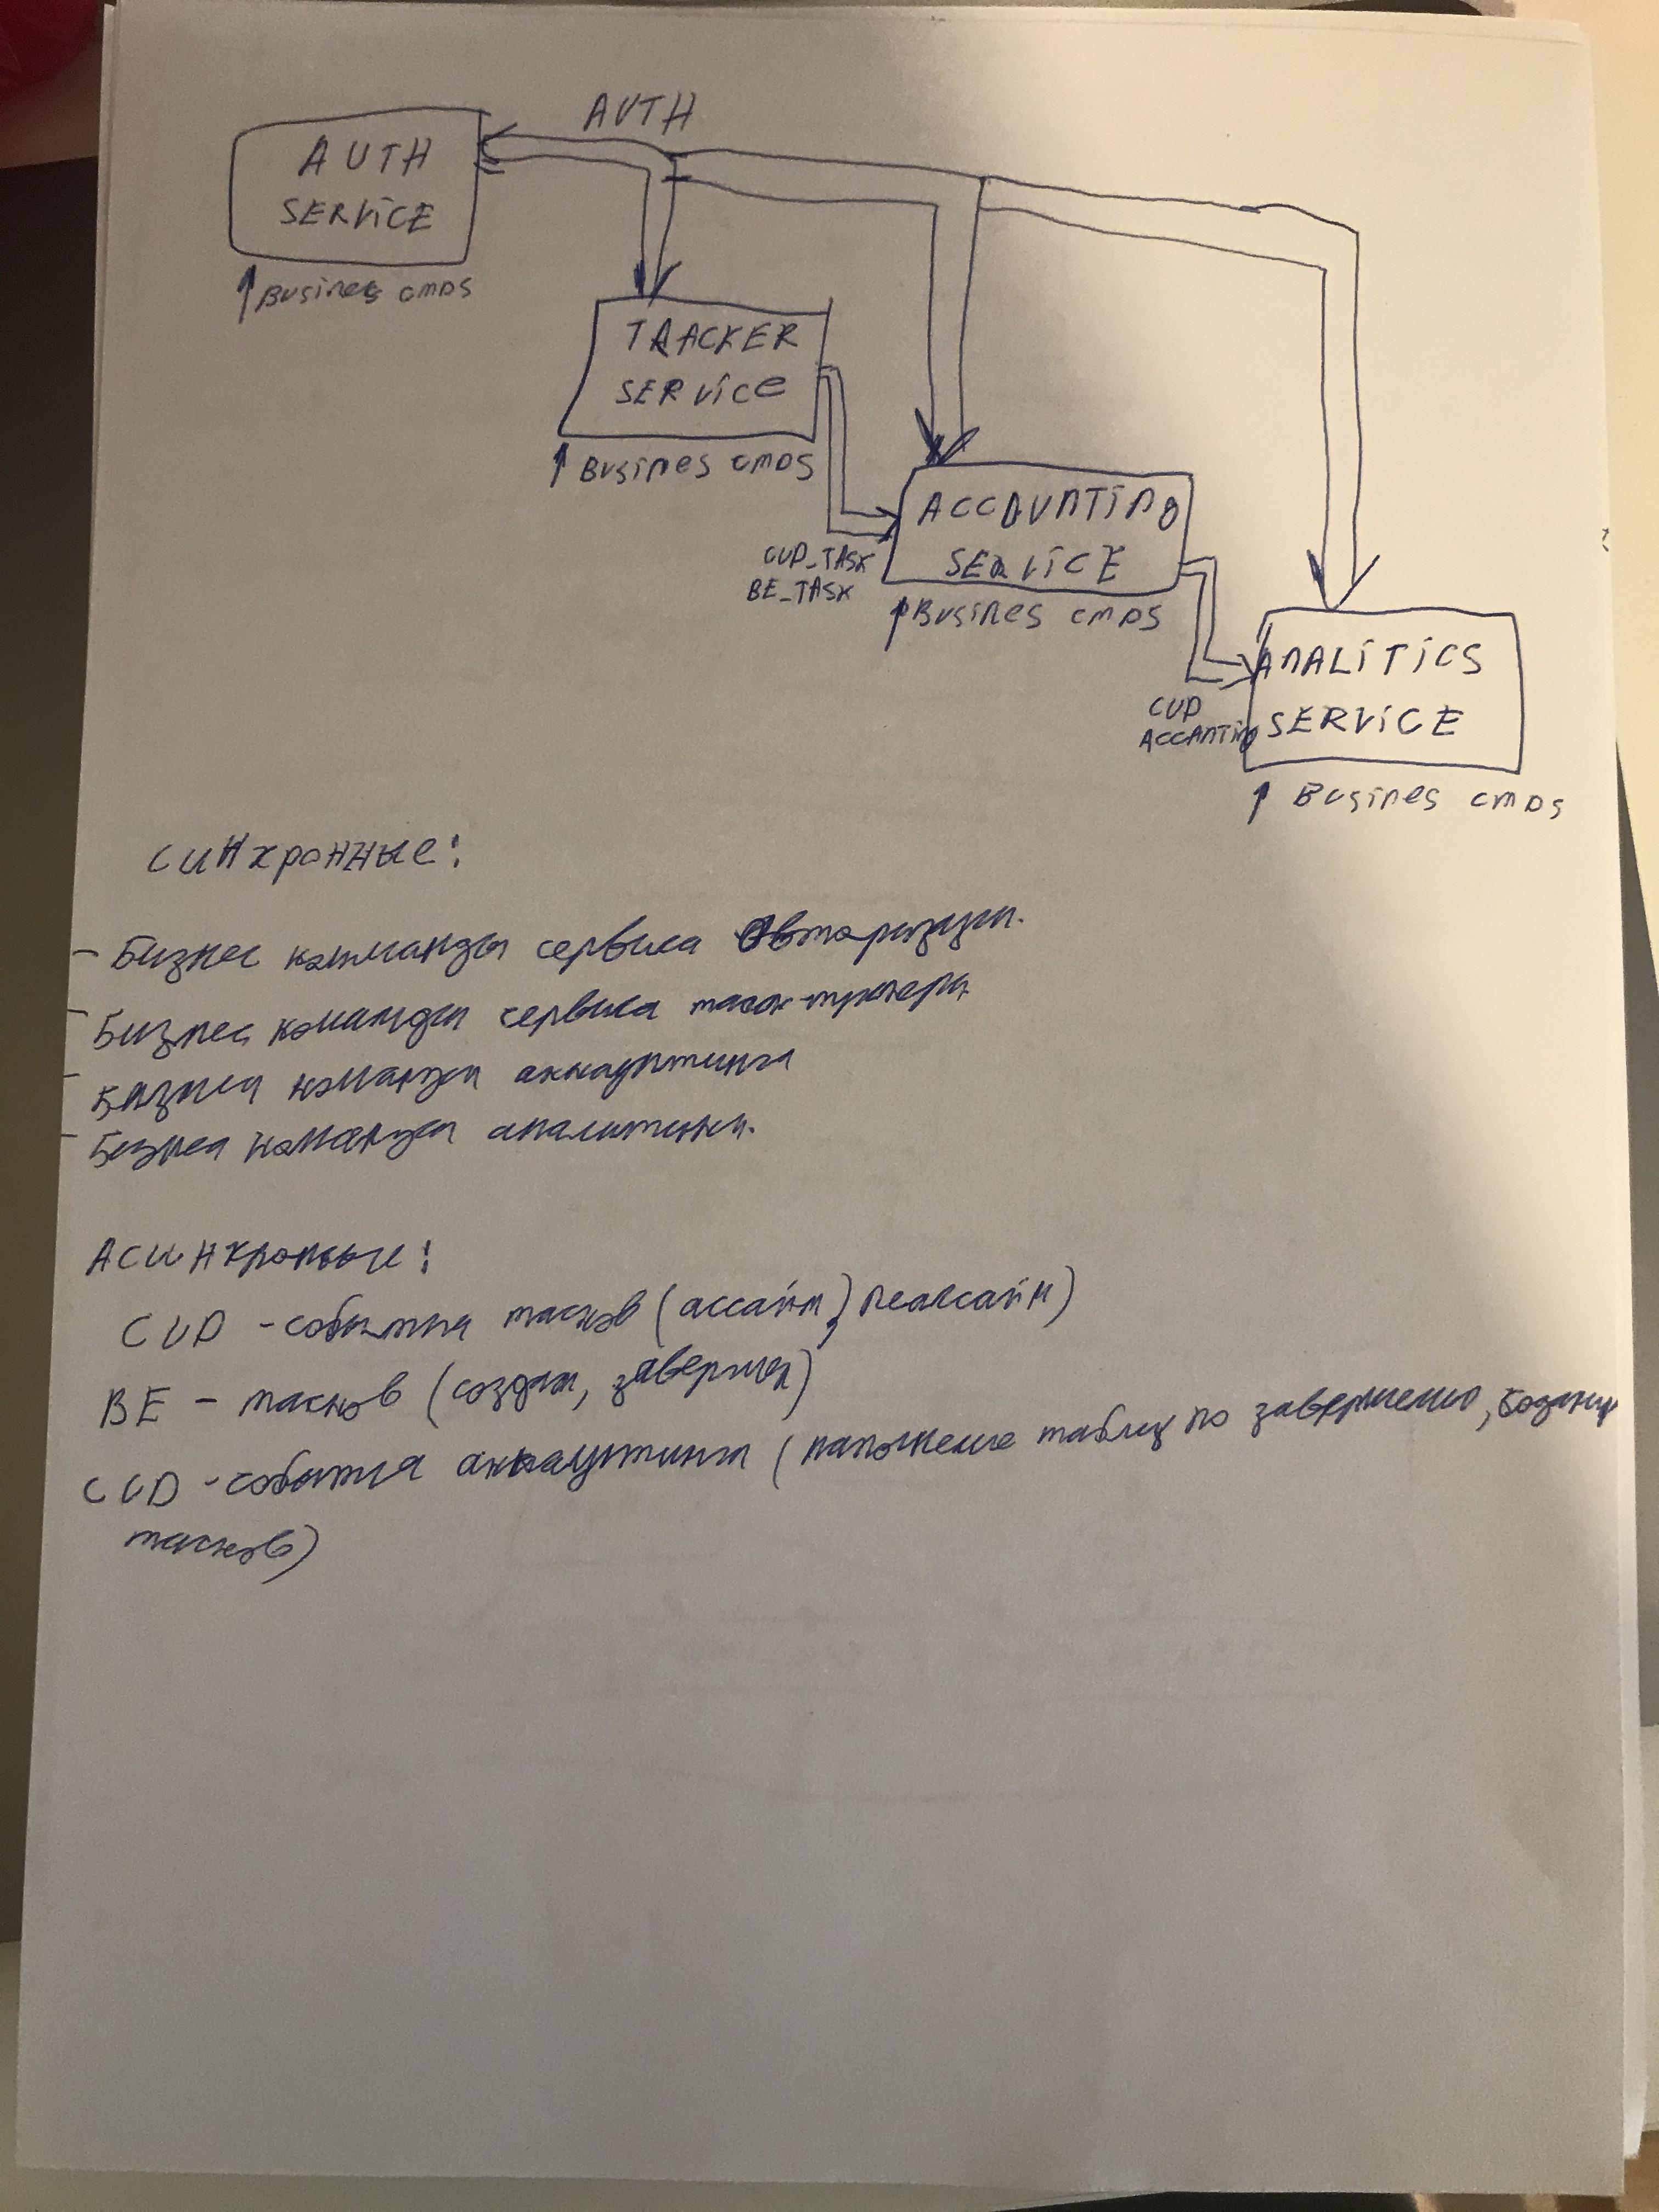 AUTH
AUTH
SERVICE
↑ Busines cmds
TRACKER
SERVICE
↑ Busines cmds
ACCOUNTING
SERVICE
CUD_TASK
BE_TASK
↑ Busines cmds
ANALITICS
SERVICE
CUD
ACCANTING
↑ Busines cmds
Синхронные:
- Бизнес команды сервиса Авторизации.
- Бизнес команды сервиса таск-трекера
- Бизнес команды аккаунтинга
- Бизнес команды аналитики.
Асинхронные:
CUD - события тасков (ассайн, реассайн)
BE - тасков (создан, завершен)
CUD - события аккаунтинга (наполнение таблиц по завершению, создании
тасков)